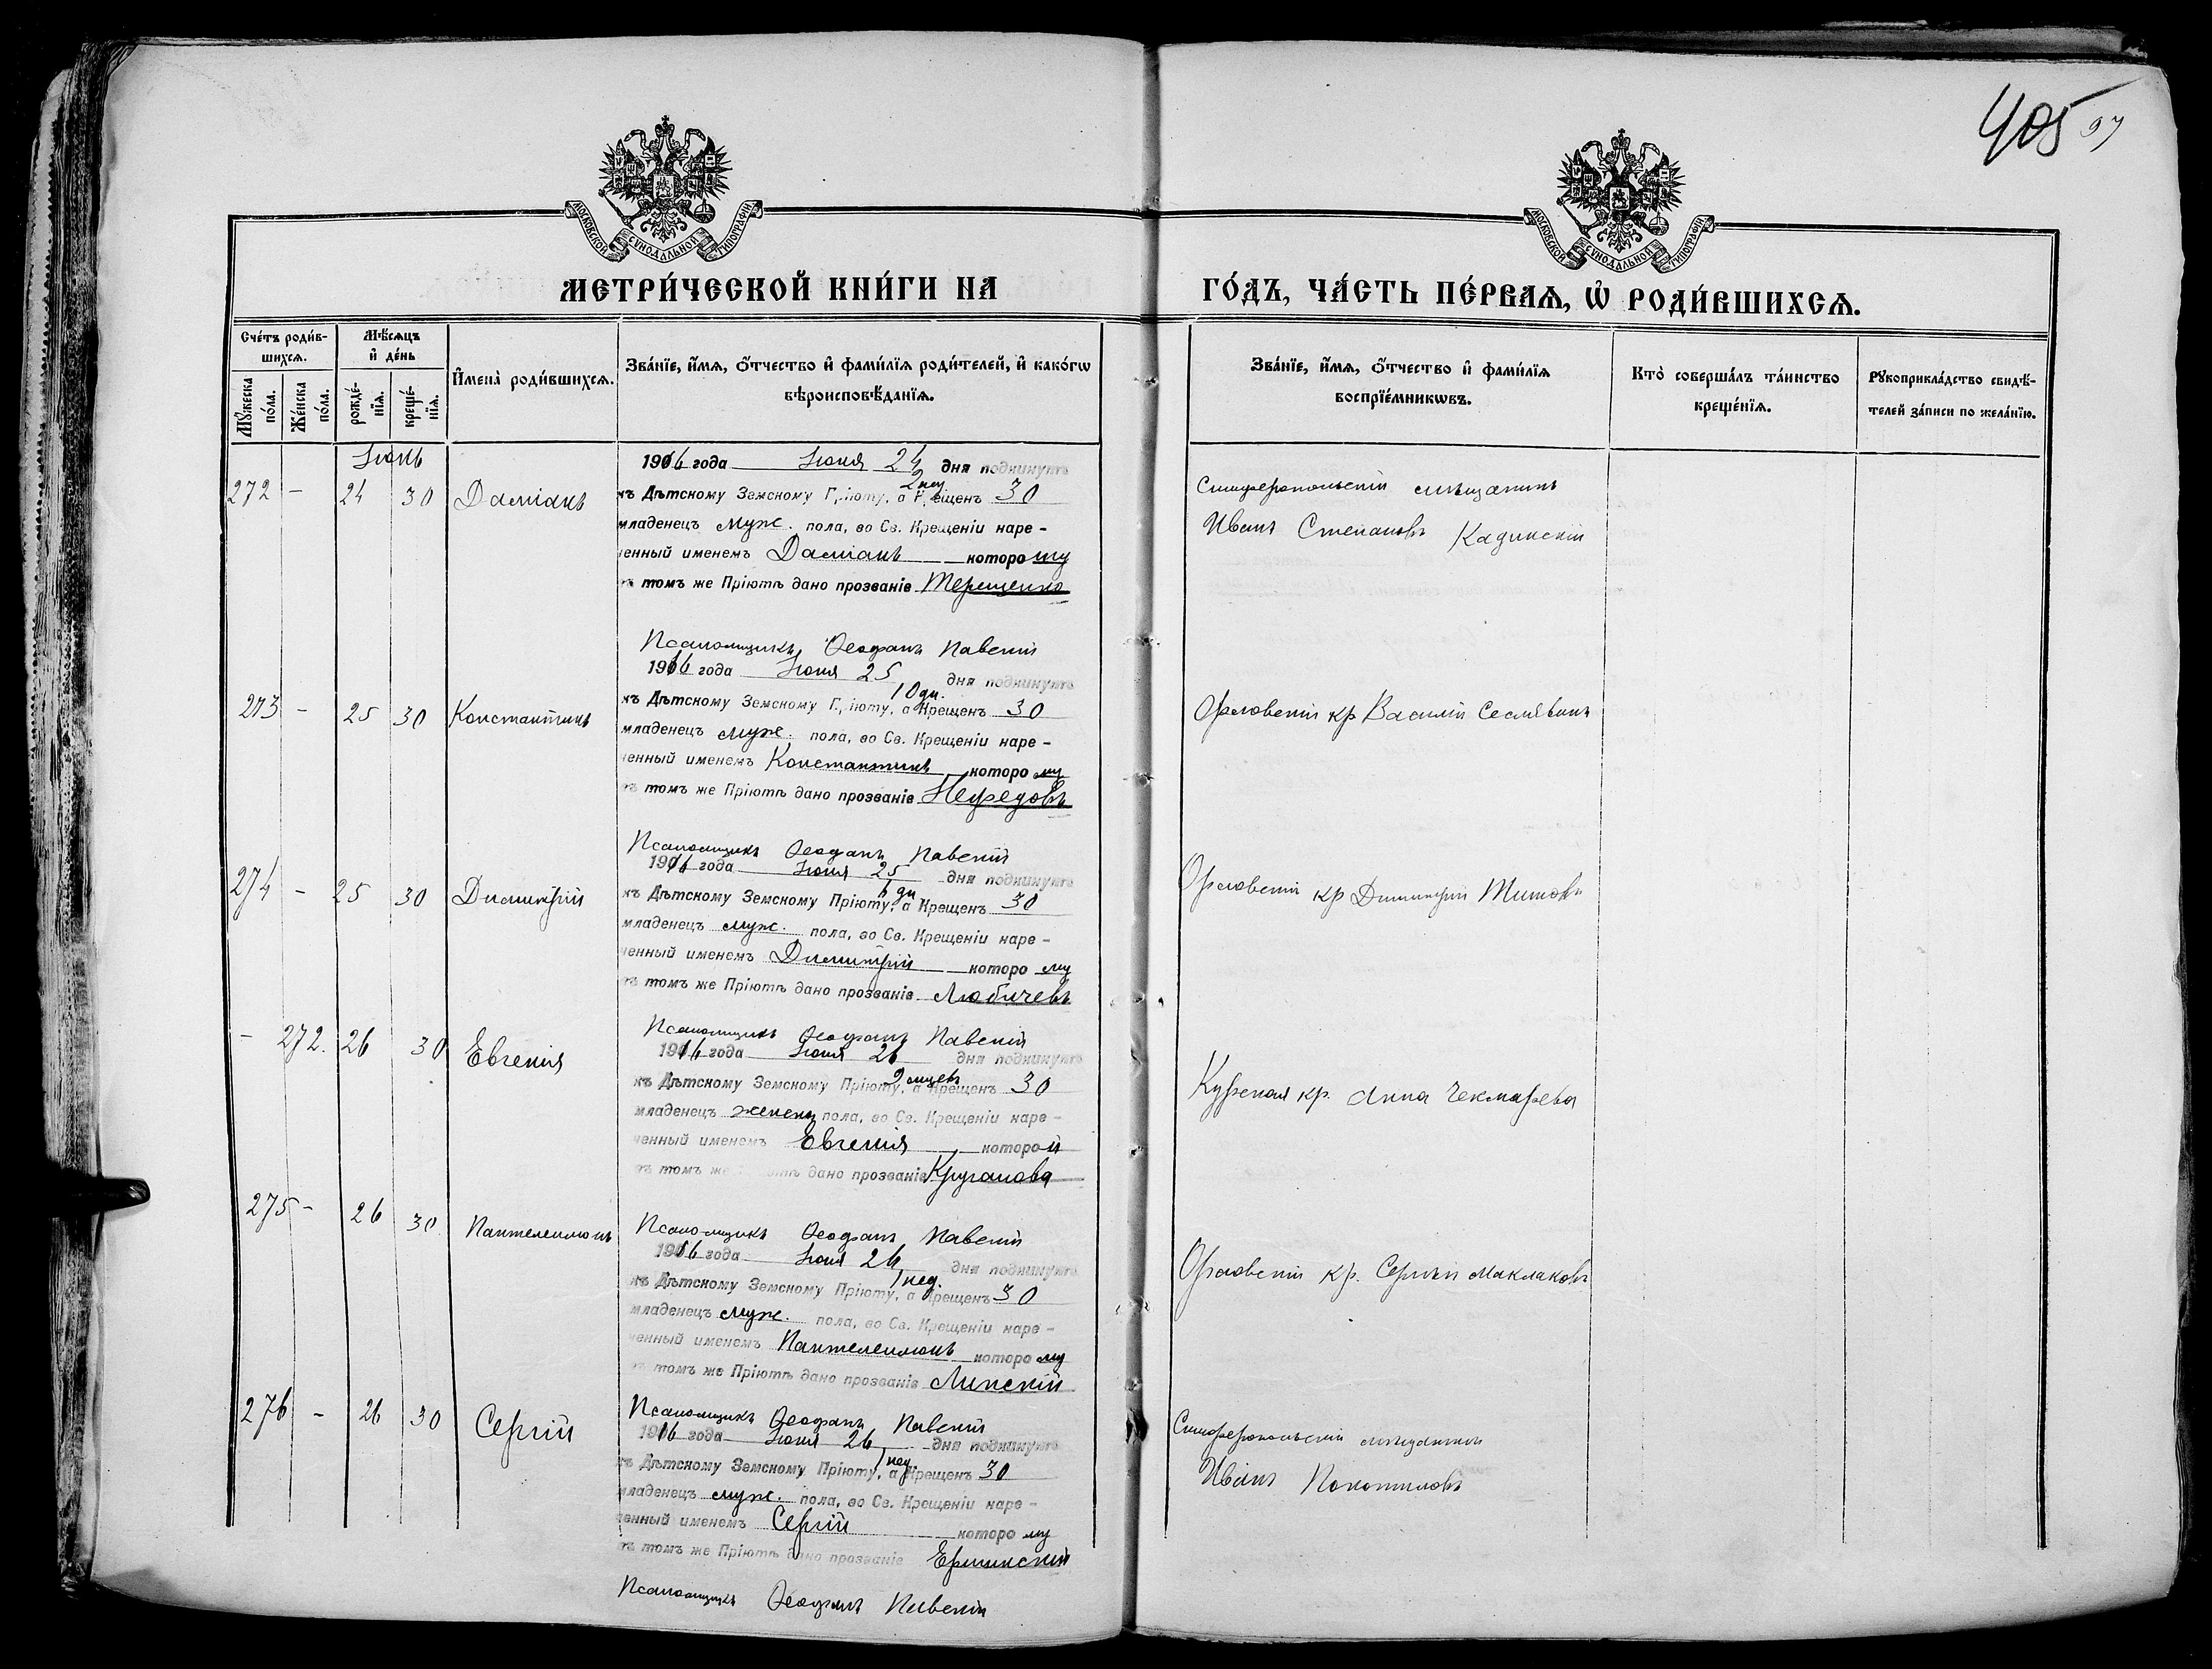 405 97
МОСКОВСКОЙ СѴНОДАЛЬНОЙ ТИПОГРАФІИ
МОСКОВСКОЙ СѴНОДАЛЬНОЙ ТИПОГРАФІИ
МЕТРИ́ЧЕСКОЙ КНИ́ГИ НА
ГО́ДЪ, ЧА́СТЬ ПЕ́РВАѦ, Ѽ РОДИ́ВШИХСѦ.
Сче́тъ роди́в-
шихсѧ.
Мѣ́сѧцъ
и҆ де́нь
Мꙋ́жеска по́ла.
Же́нска по́ла.
рожде́-нїѧ.
креще́-нїѧ.
И҆мена̀ роди́вшихсѧ.
Зва́нїе, и҆́мѧ, ѻ҆́тчество и҆ фами́лїѧ роди́телей, и҆ како́гѡ
вѣроисповѣ́данїѧ.
Зва́нїе, и҆́мѧ, ѻ҆́тчество и҆ фами́лїѧ
воспрїе́мникѡвъ.
Кто̀ соверша́лъ та́инство
креще́нїѧ.
Рꙋкоприкла́дство свидѣ́-
телей за́писи по жела́нїю.
Іюнь
272 - 24 30 Даміанъ
1916 года Іюня 24 дня подкинутъ
2 нед
къ Дѣтскому Земскому Пріюту, а Крещенъ 30
младенецъ муж. пола, во Св. Крещеніи наре-
ченный именемъ Даміанъ которому
въ томъ же Пріютѣ дано прозваніе Терещенко
Псаломщикъ Ѳеофанъ Павскій
Симферопольскій мѣщанинъ
Иванъ Степановъ Кадинскій
273 - 25 30 Константинъ
1916 года Іюня 25 дня подкинутъ
10 дн.
къ Дѣтскому Земскому Пріюту, а Крещенъ 30
младенецъ муж. пола, во Св. Крещеніи наре-
ченный именемъ Константинъ которому
въ томъ же Пріютѣ дано прозваніе Нефедовъ
Псаломщикъ Ѳеофанъ Павскій
Орловскій кр Василій
274 - 25 30 Димитрій
1916 года Іюня 25 дня подкинутъ
6 дн
къ Дѣтскому Земскому Пріюту, а Крещенъ 30
младенецъ муж. пола, во Св. Крещеніи наре-
ченный именемъ Димитрій которому
въ томъ же Пріютѣ дано прозваніе Любичевъ
Псаломщикъ Ѳеофанъ Павскій
Орловскій кр Димитрій Титовъ
- 272. 26 30 Евгенія
1916 года Іюня 26 дня подкинутъ
2 мцевъ
къ Дѣтскому Земскому Пріюту, а Крещенъ 30
младенецъ женск пола, во Св. Крещеніи наре-
ченный именемъ Евгенія которой
въ томъ же Пріютѣ дано прозваніе
Псаломщикъ Ѳеофанъ Павскій
Курская кр. Анна Чекмарева
275 - 26 30 Пантелеимонъ
1916 года Іюня 26 дня подкинутъ
1 нед.
къ Дѣтскому Земскому Пріюту, а Крещенъ 30
младенецъ муж. пола, во Св. Крещеніи наре-
ченный именемъ Пантелеимонъ которому
въ томъ же Пріютѣ дано прозваніе Липскій
Псаломщикъ Ѳеофанъ Павскій
Орловскій кр. Сергѣй Маклаковъ
276 - 26 30 Сергій
1916 года Іюня 26 дня подкинутъ
1 нед
къ Дѣтскому Земскому Пріюту, а Крещенъ 30
младенецъ муж. пола, во Св. Крещеніи наре-
ченный именемъ Сергій которому
въ томъ же Пріютѣ дано прозваніе
Псаломщикъ Ѳеофанъ Павскій
Симферопольскій мѣщанинъ
Иванъ Покотиловъ